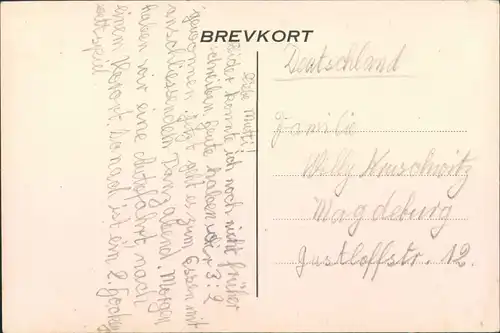 BREVKORT
Liebe Mutti!
Leider konnte ich noch nicht früher
schreiben. Heute haben wir 3:2
gewonnen. Jetzt geht es zum Essen mit
anschliessendem Tanzabend. Morgen
haben wir eine Autofahrt nach
einem Kurort. Danach ist ein 2. Hockey
wettspiel
Deutschland
Familie
Willy Kruschwitz
Magdeburg
Gustloffstr. 12.